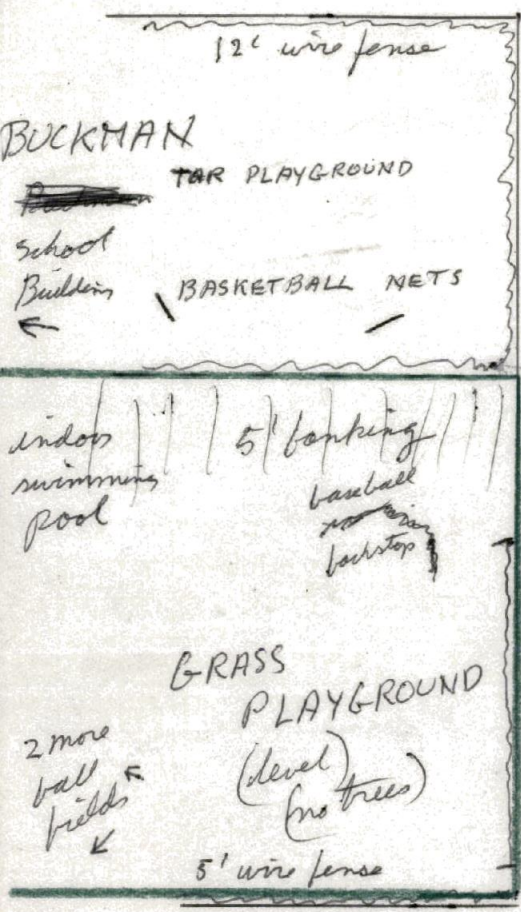 12' wire fense
BUCKMAN
TAR PLAYGROUND
School
Building
BASKETBALL NETS
indoor
swimming
pool
5' banking
baseball
backstop
GRASS
PLAYGROUND
(level)
(no trees)
2 more
ball
fields
5' wire fense